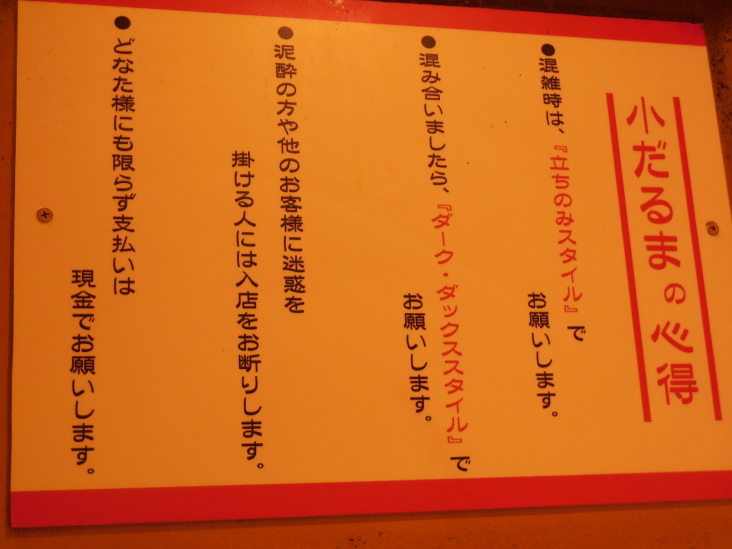 小だるまの心得
●混雑時は、『立ちのみスタイル』で
お願いします。
●混み合いましたら、『ダーク・ダックススタイル』で
お願いします。
●泥酔の方や他のお客様に迷惑を
掛ける人には入店をお断りします。
●どなた様にも限らず支払いは
現金でお願いします。